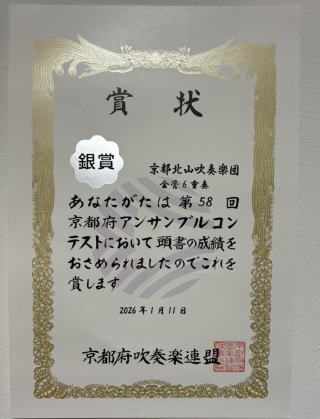 賞状
銀賞
京都北山吹奏楽団
金管6重奏
あなたがたは第58回
京都府アンサンブルコン
テストにおいて頭書の成績を
おさめられましたのでこれを
賞します
2026年1月11日
京都府吹奏楽連盟